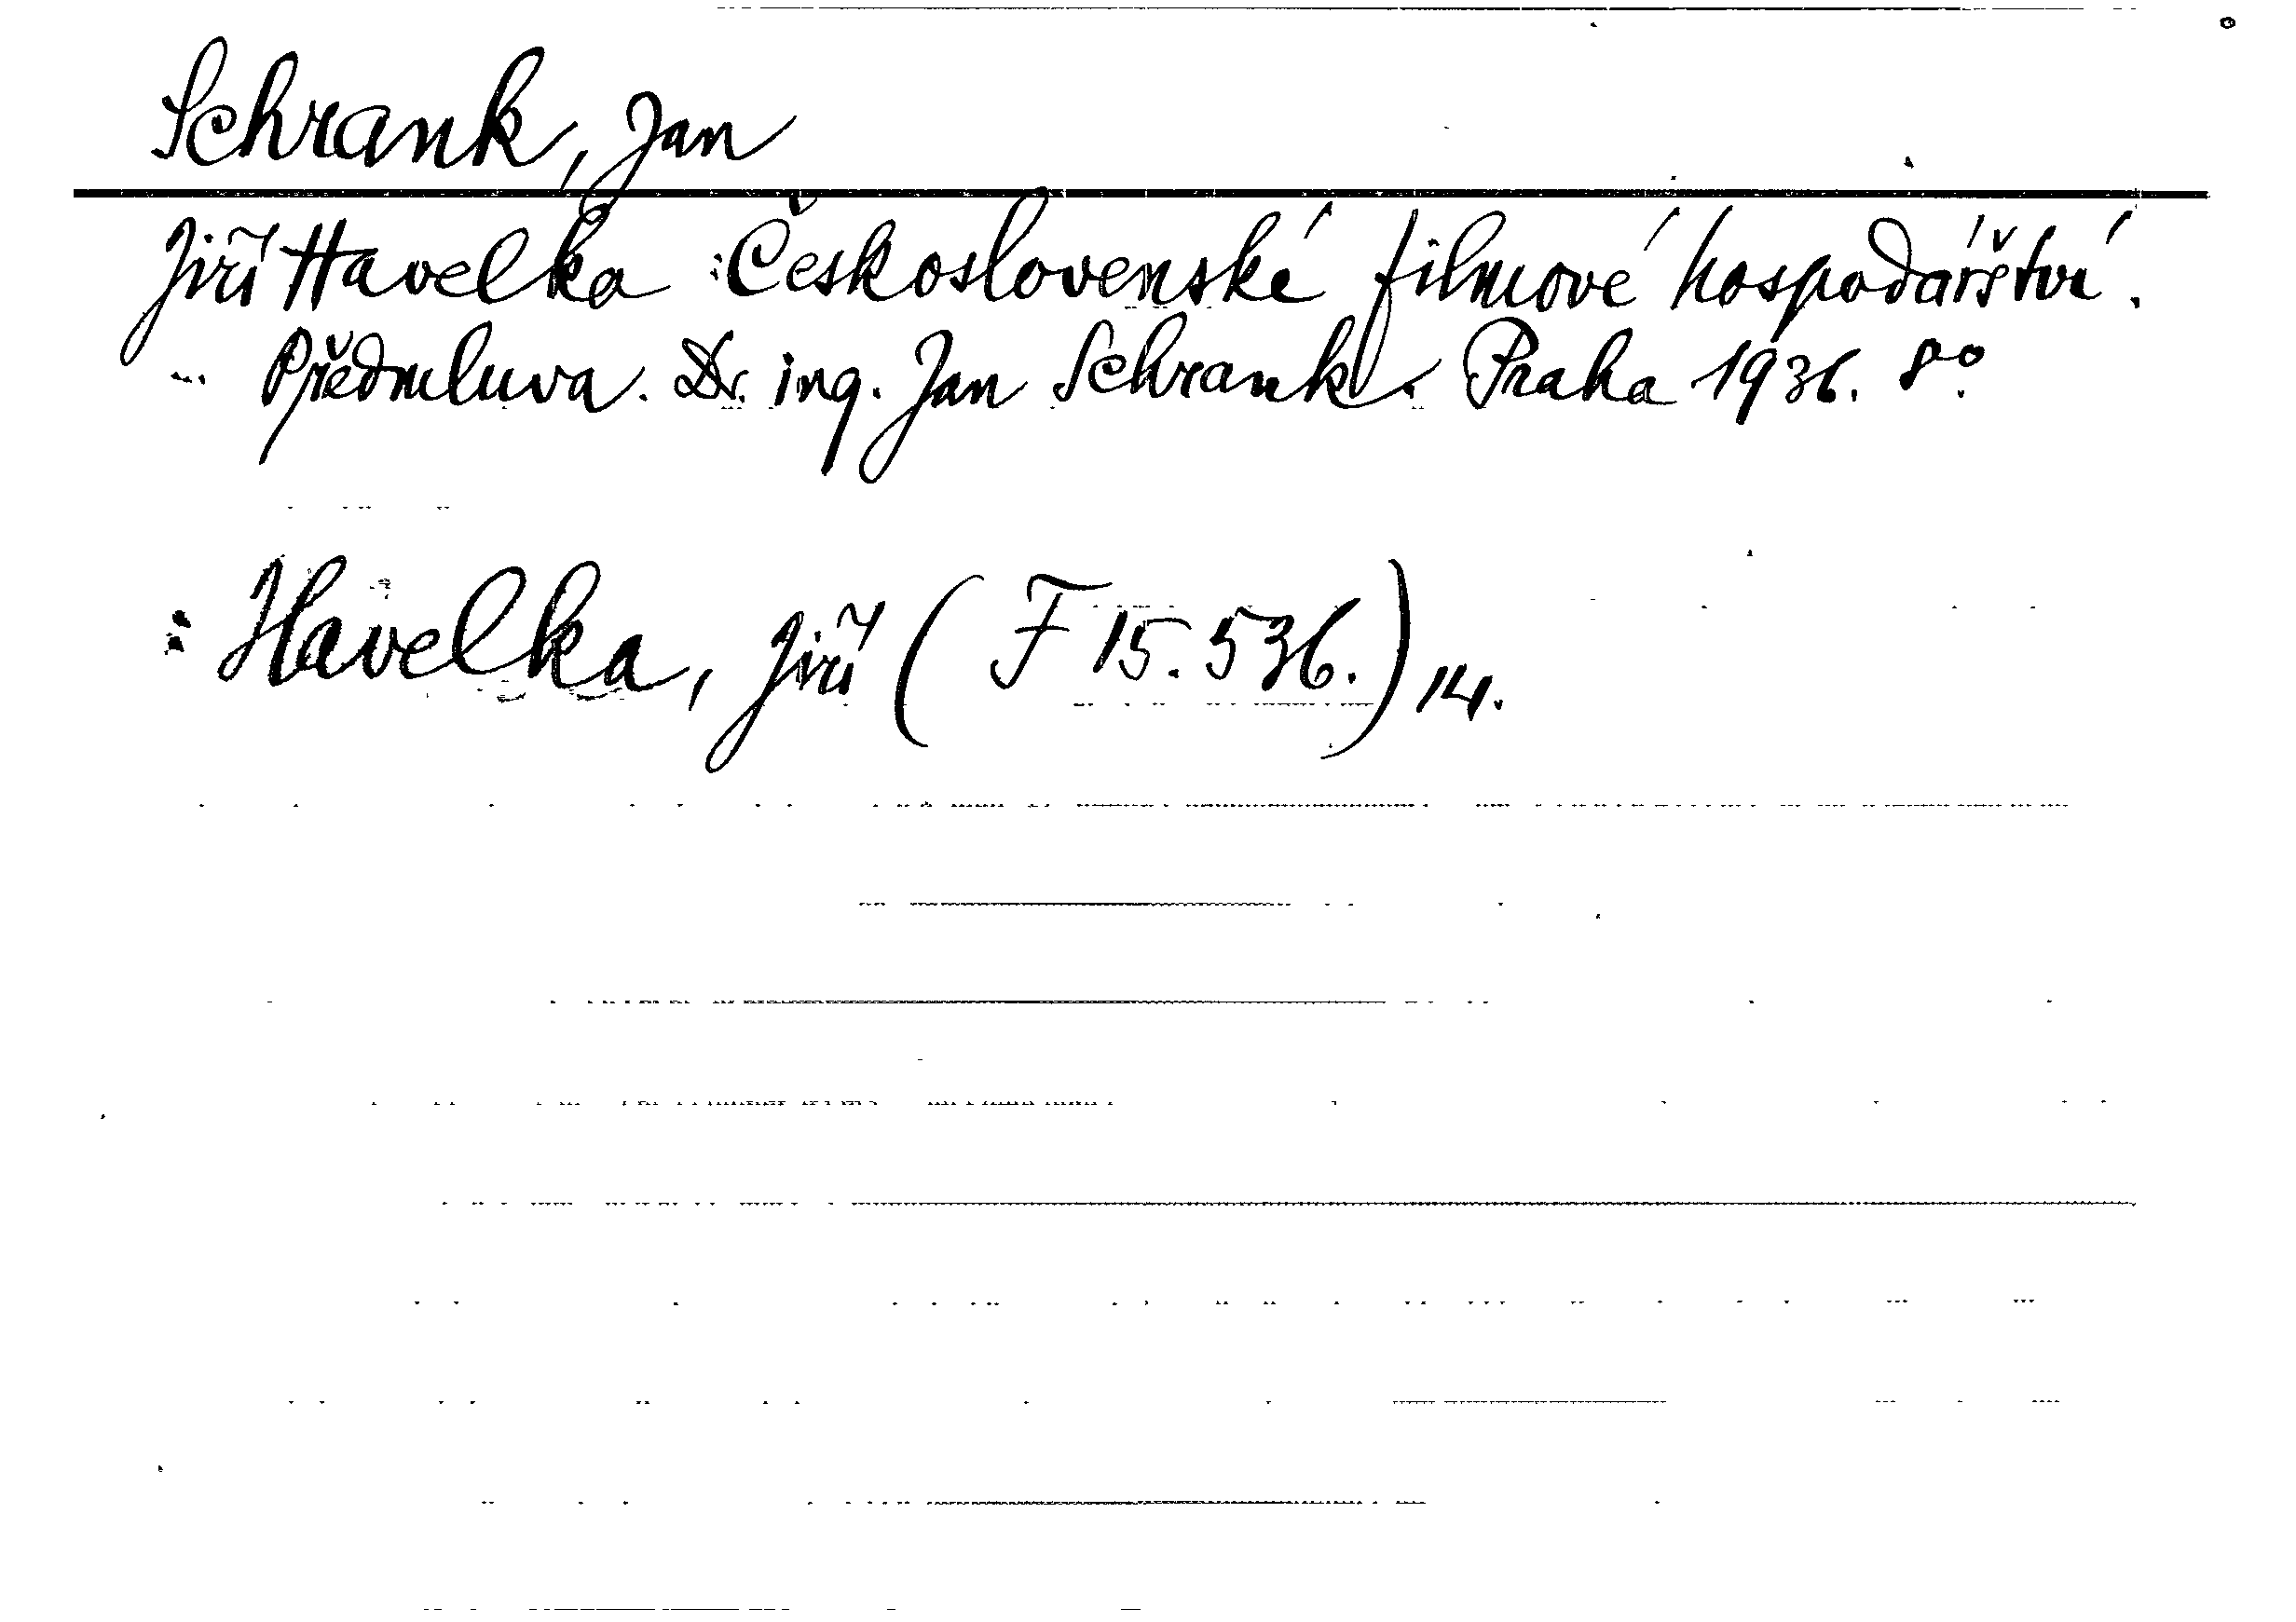 Schrank, Jan
Jiří Havelka : Československé filmové hospodářství.
... Předmluva. Dr. ing. Jan Schrank. Praha 1936. 8°.
: Havelka, Jiří ( F 15.536.) 14.